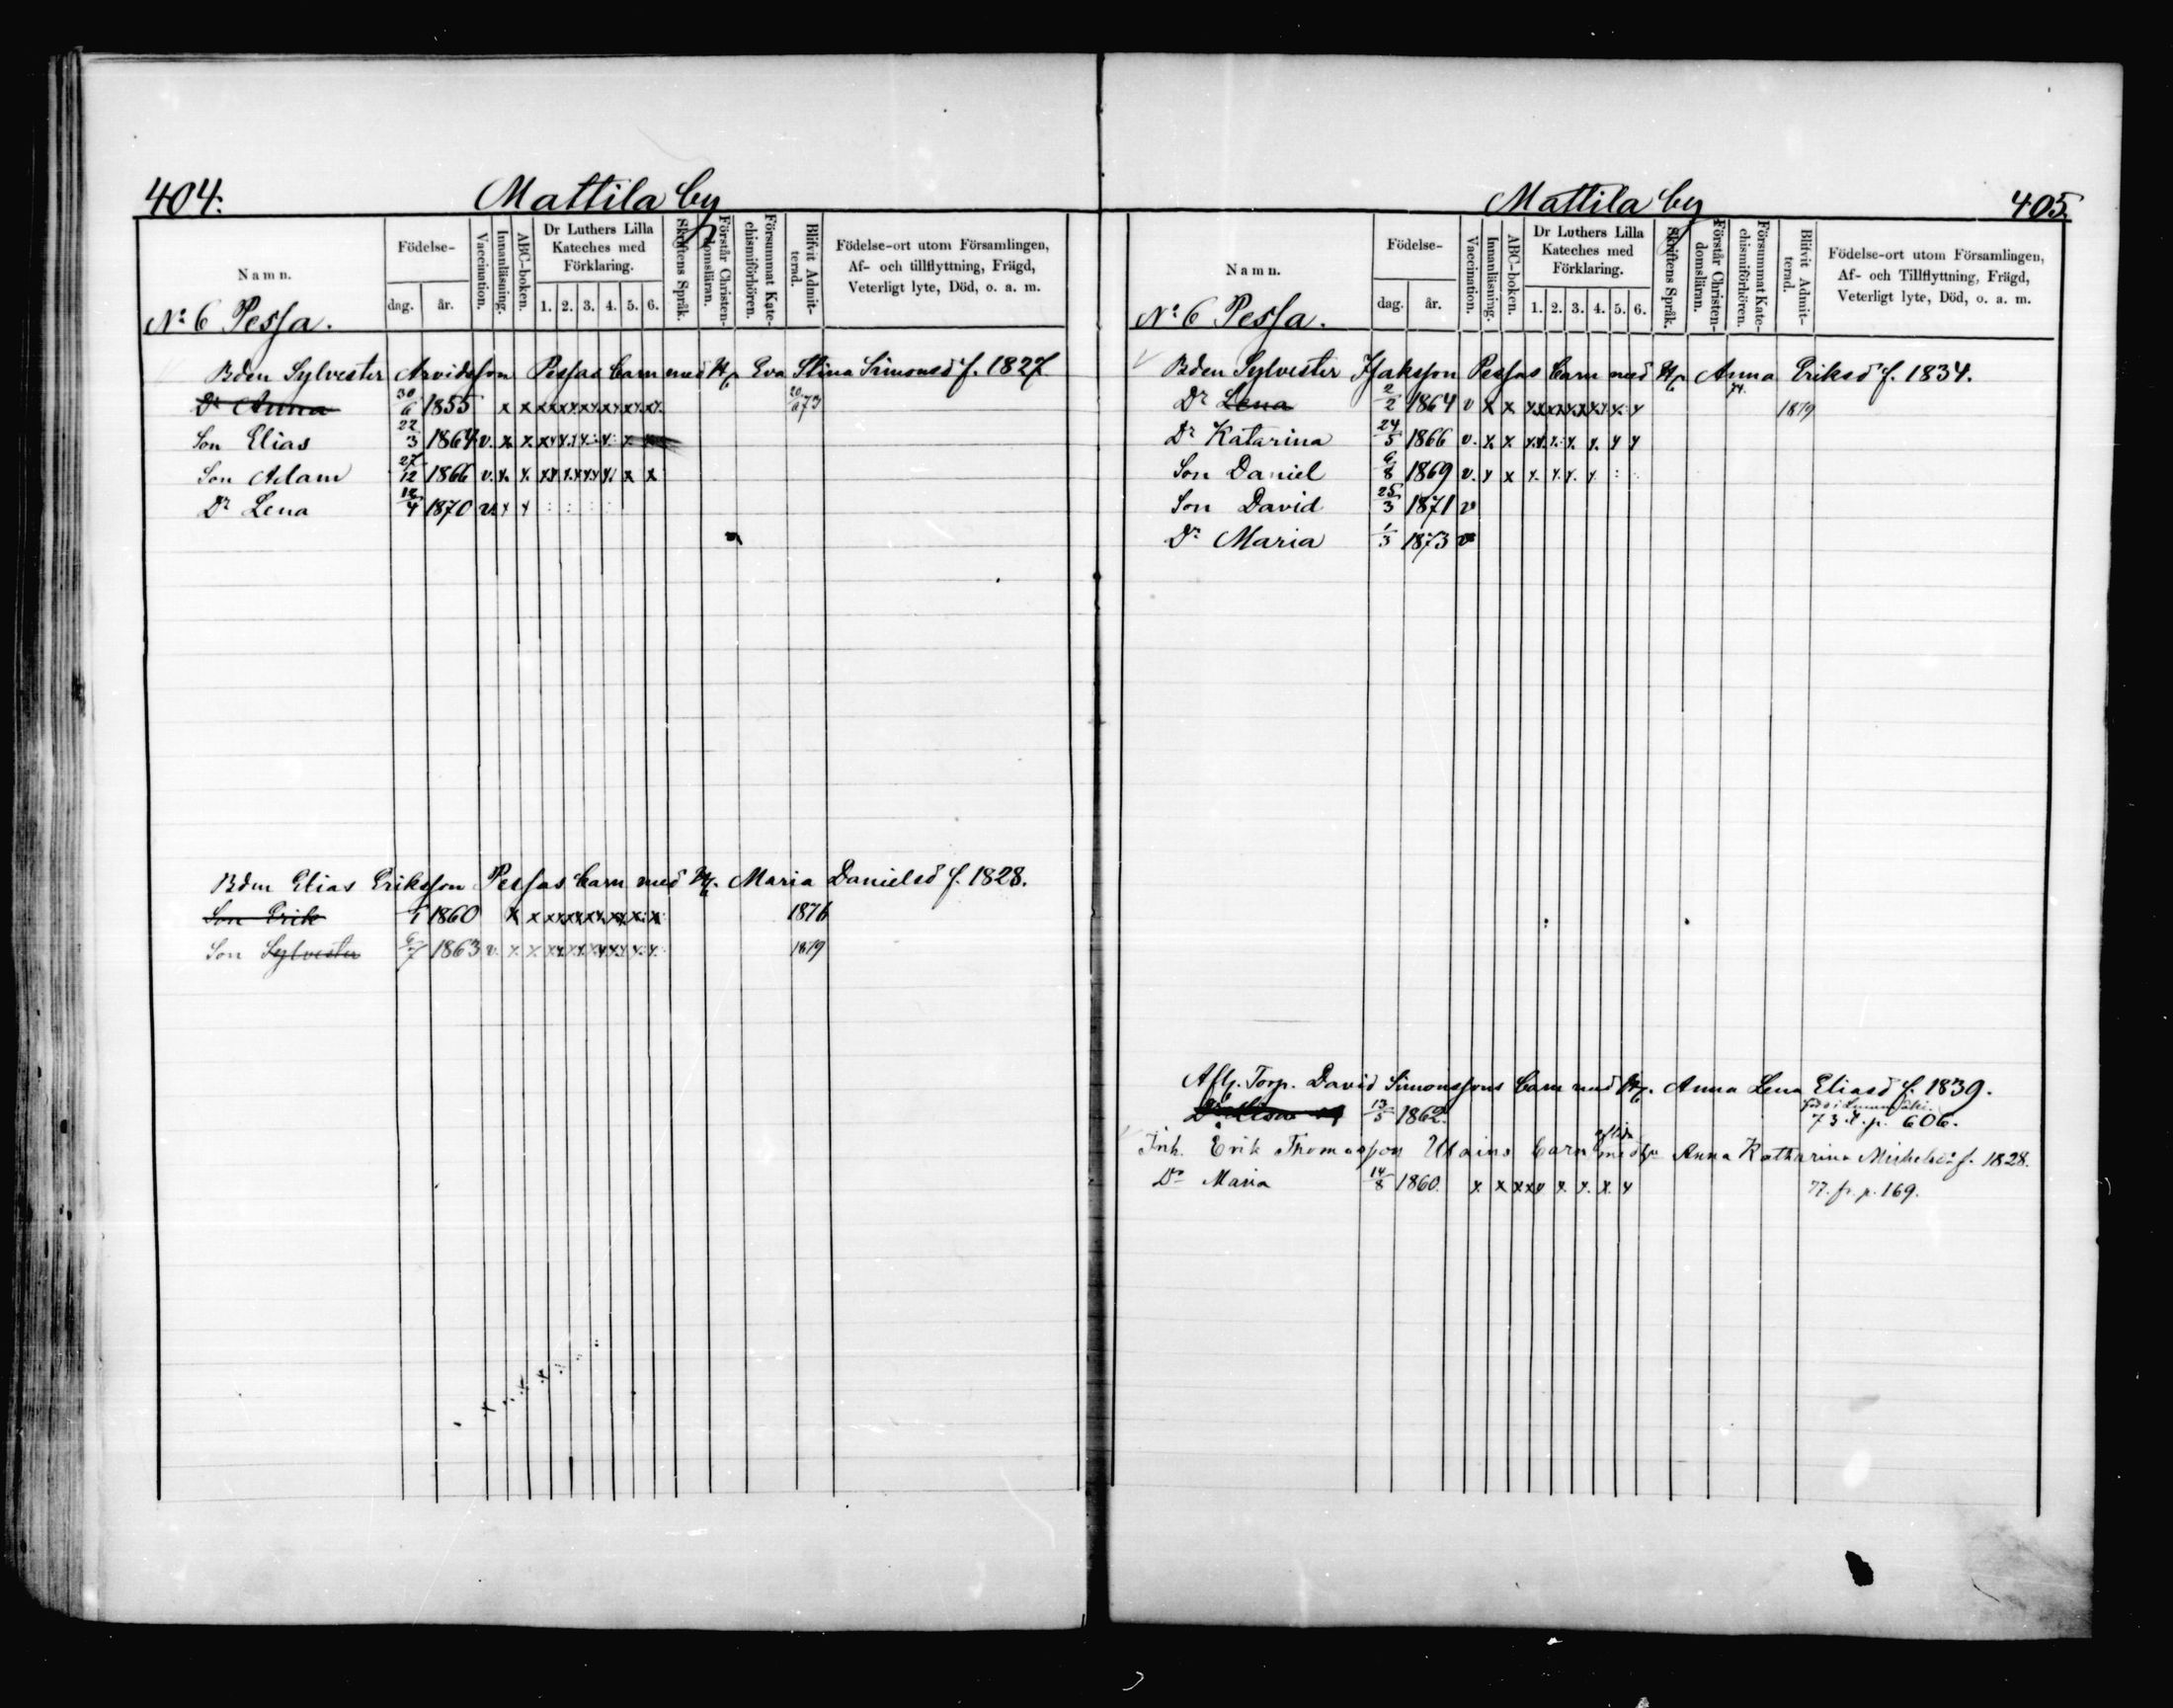 404:
Mattila by
Namn.
Födelse-
dag.
år.
Vaccination.
Innanläsning.
ABC-boken.
Dr Luthers Lilla Kateches med Förklaring.
1. 2. 3. 4. 5. 6.
Skriftens Språk.
Förstår Christendomsläran.
Försummat Katechismiförhören.
Blifvit Admitterad.
Födelse-ort utom Församlingen, Af- och tillflyttning, Frägd, Veterligt lyte, Död, o. a. m.
No 6 Pessa.
Bden Sylvester Arvidsson Pessas barn med H. Eva Stina Simonsd f. 1827
Dr Anna 30/6 1855 x x 73
Son Elias 22/3 1864 v. x x
Son Adam 27/12 1866 v. x x
Dr Lena 18/4 1870 v. x x
Bden Elias Eriksson Pessas barn med H. Maria Danielsd f. 1828.
Son Erik 1860 x x 1876
Son Sylvester 6/7 1863 v. x x 1879
Mattila by
405.
Namn.
Födelse-
dag.
år.
Vaccination.
Innanläsning.
ABC-boken.
Dr Luthers Lilla Kateches med Förklaring.
1. 2. 3. 4. 5. 6.
Skriftens Språk.
Förstår Christendomsläran.
Försummat Katechismiförhören.
Blifvit Admitterad.
Födelse-ort utom Församlingen, Af- och Tillflyttning, Frägd, Veterligt lyte, Död, o. a. m.
No 6 Pessa.
Bden Sylvester Isaksson Pessas barn med H. Anna Eriksd f. 1834.
Dr Lena 2/2 1864 v x x 74. 1879
Dr Katarina 24/5 1866 v. x x
Son Daniel 6/8 1869 v. x x
Son David 25/3 1871 v
Dr Maria 1/3 1873 v
Afl. Torp. David Simonssons barn med H. Anna Lena Eliasd f. 1839.
Dr 13/5 1862. 73. t. p. 606.
Inh. Erik Thomasson Ulains barn med Anna Katharina Michelsd f. 1828.
Dr Maria 14/8 1860. x x 77. fr. p. 169.